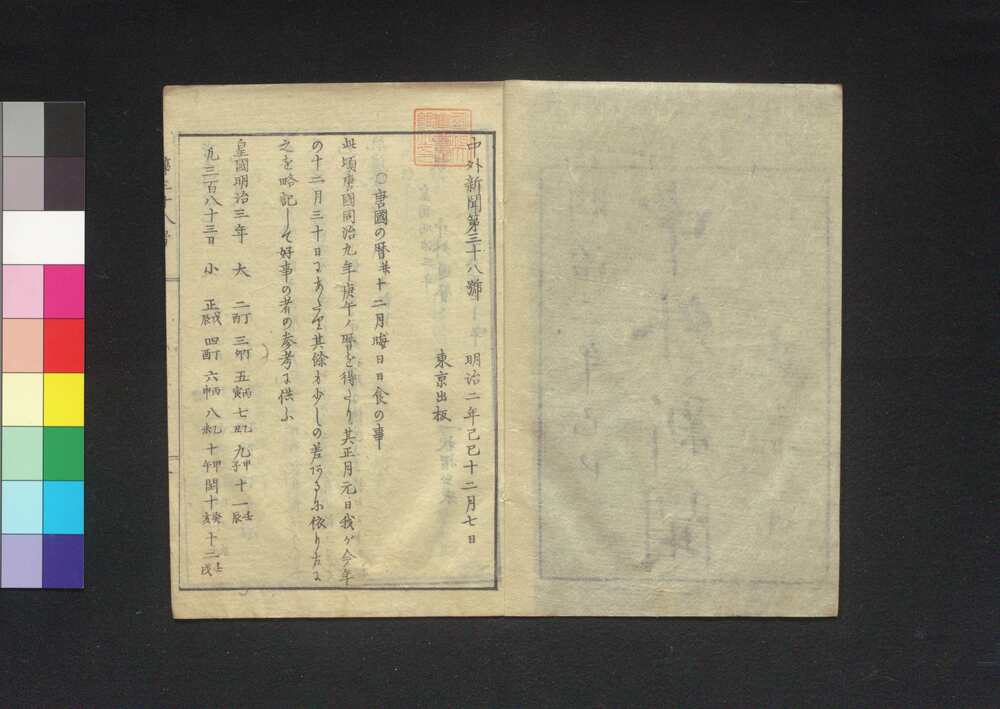 中外新聞第三十八號 明治二年己巳十二月七日
東京出板
○唐國の暦并十二月晦日日食の事
此頃唐國同治九年庚午ノ暦を得たり其正月元日我ガ今年
の十二月三十日にあたり其餘も少しの差アるに依り左に
之を略記して好事の者の参考に供ふ
皇國明治三年 大 二丁酉 三丁卯 五丙寅 七乙丑 九甲子 十一壬辰
凡三百八十三日 小 正戊辰 四丁酉 六丙申 八乙未 十甲午 閏十癸亥 十二壬戌
第三十八号